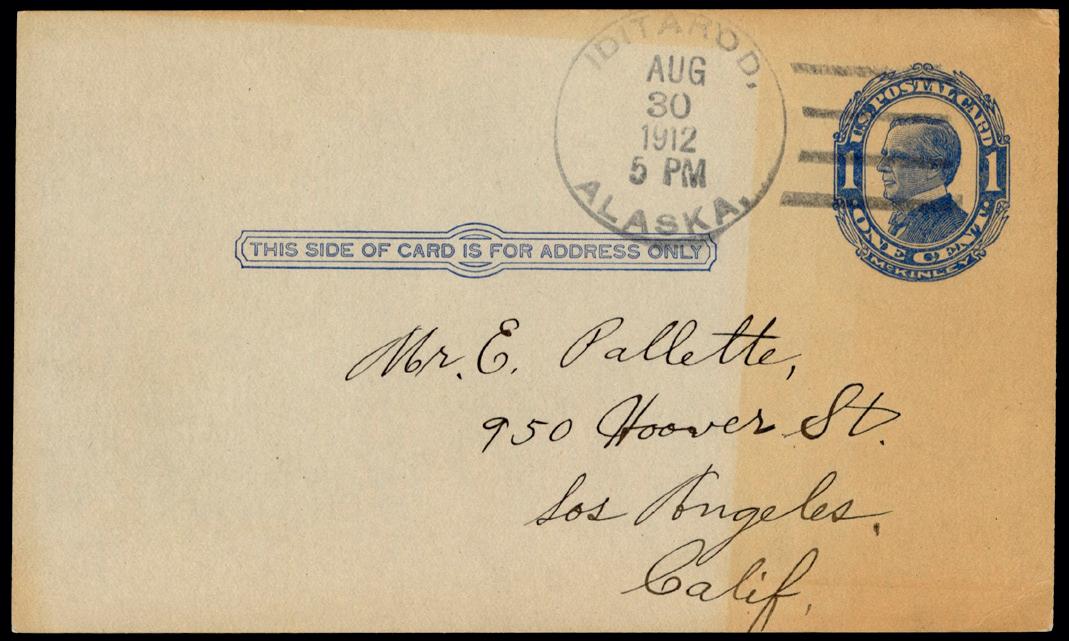 IDITAROD,
AUG
30
1912
5 PM
ALASKA.
U.S. POSTAL CARD
1 1
ONE CENT
McKINLEY
THIS SIDE OF CARD IS FOR ADDRESS ONLY
Mr. E. Pallette,
950 Hoover St.
Los Angeles,
Calif.